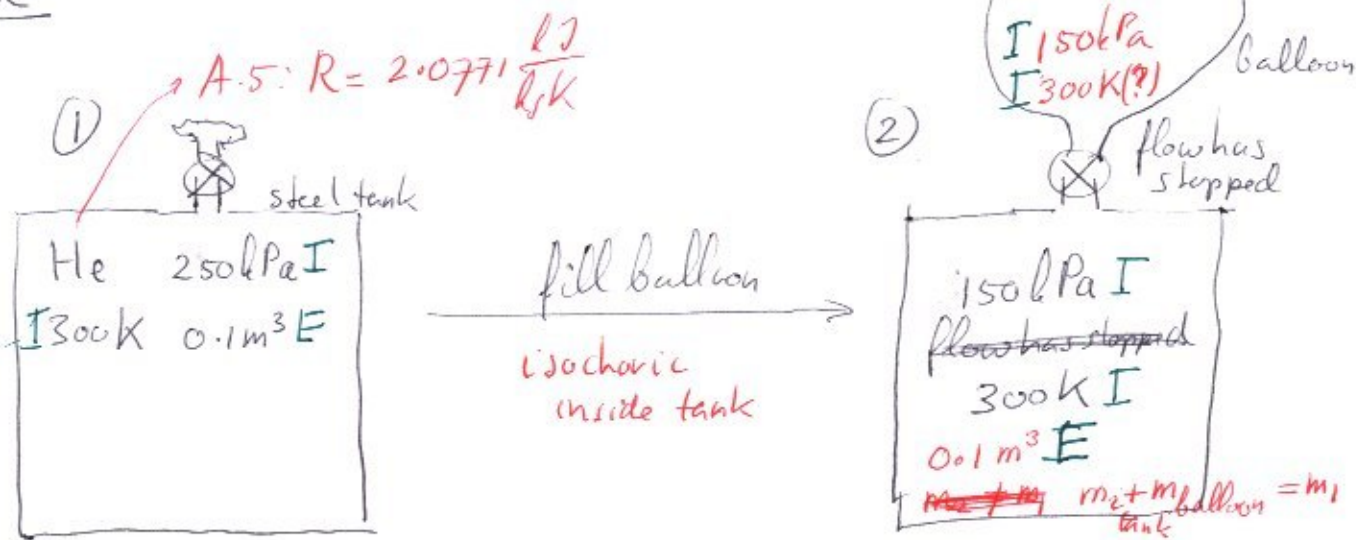 A.5: R = 2.0771 kJ/kgK
①
steel tank
He 250kPa I
I 300K 0.1m³ E
fill balloon
isochoric
inside tank
②
I 150kPa
I 300K(?)
balloon
flow has
stopped
150kPa I
flow has stopped
300K I
0.1m³ E
m₂ ≠ m₁ m₂ tank + m balloon = m₁